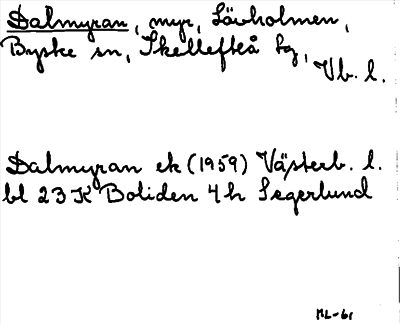 Dalmyran, myr, Lövholmen,
Byske sn, Skellefteå tg,
Vb. l.
Dalmyran ek (1959) Västerb. l.
bl 23 K Boliden 4 h Segerlund
ML-61